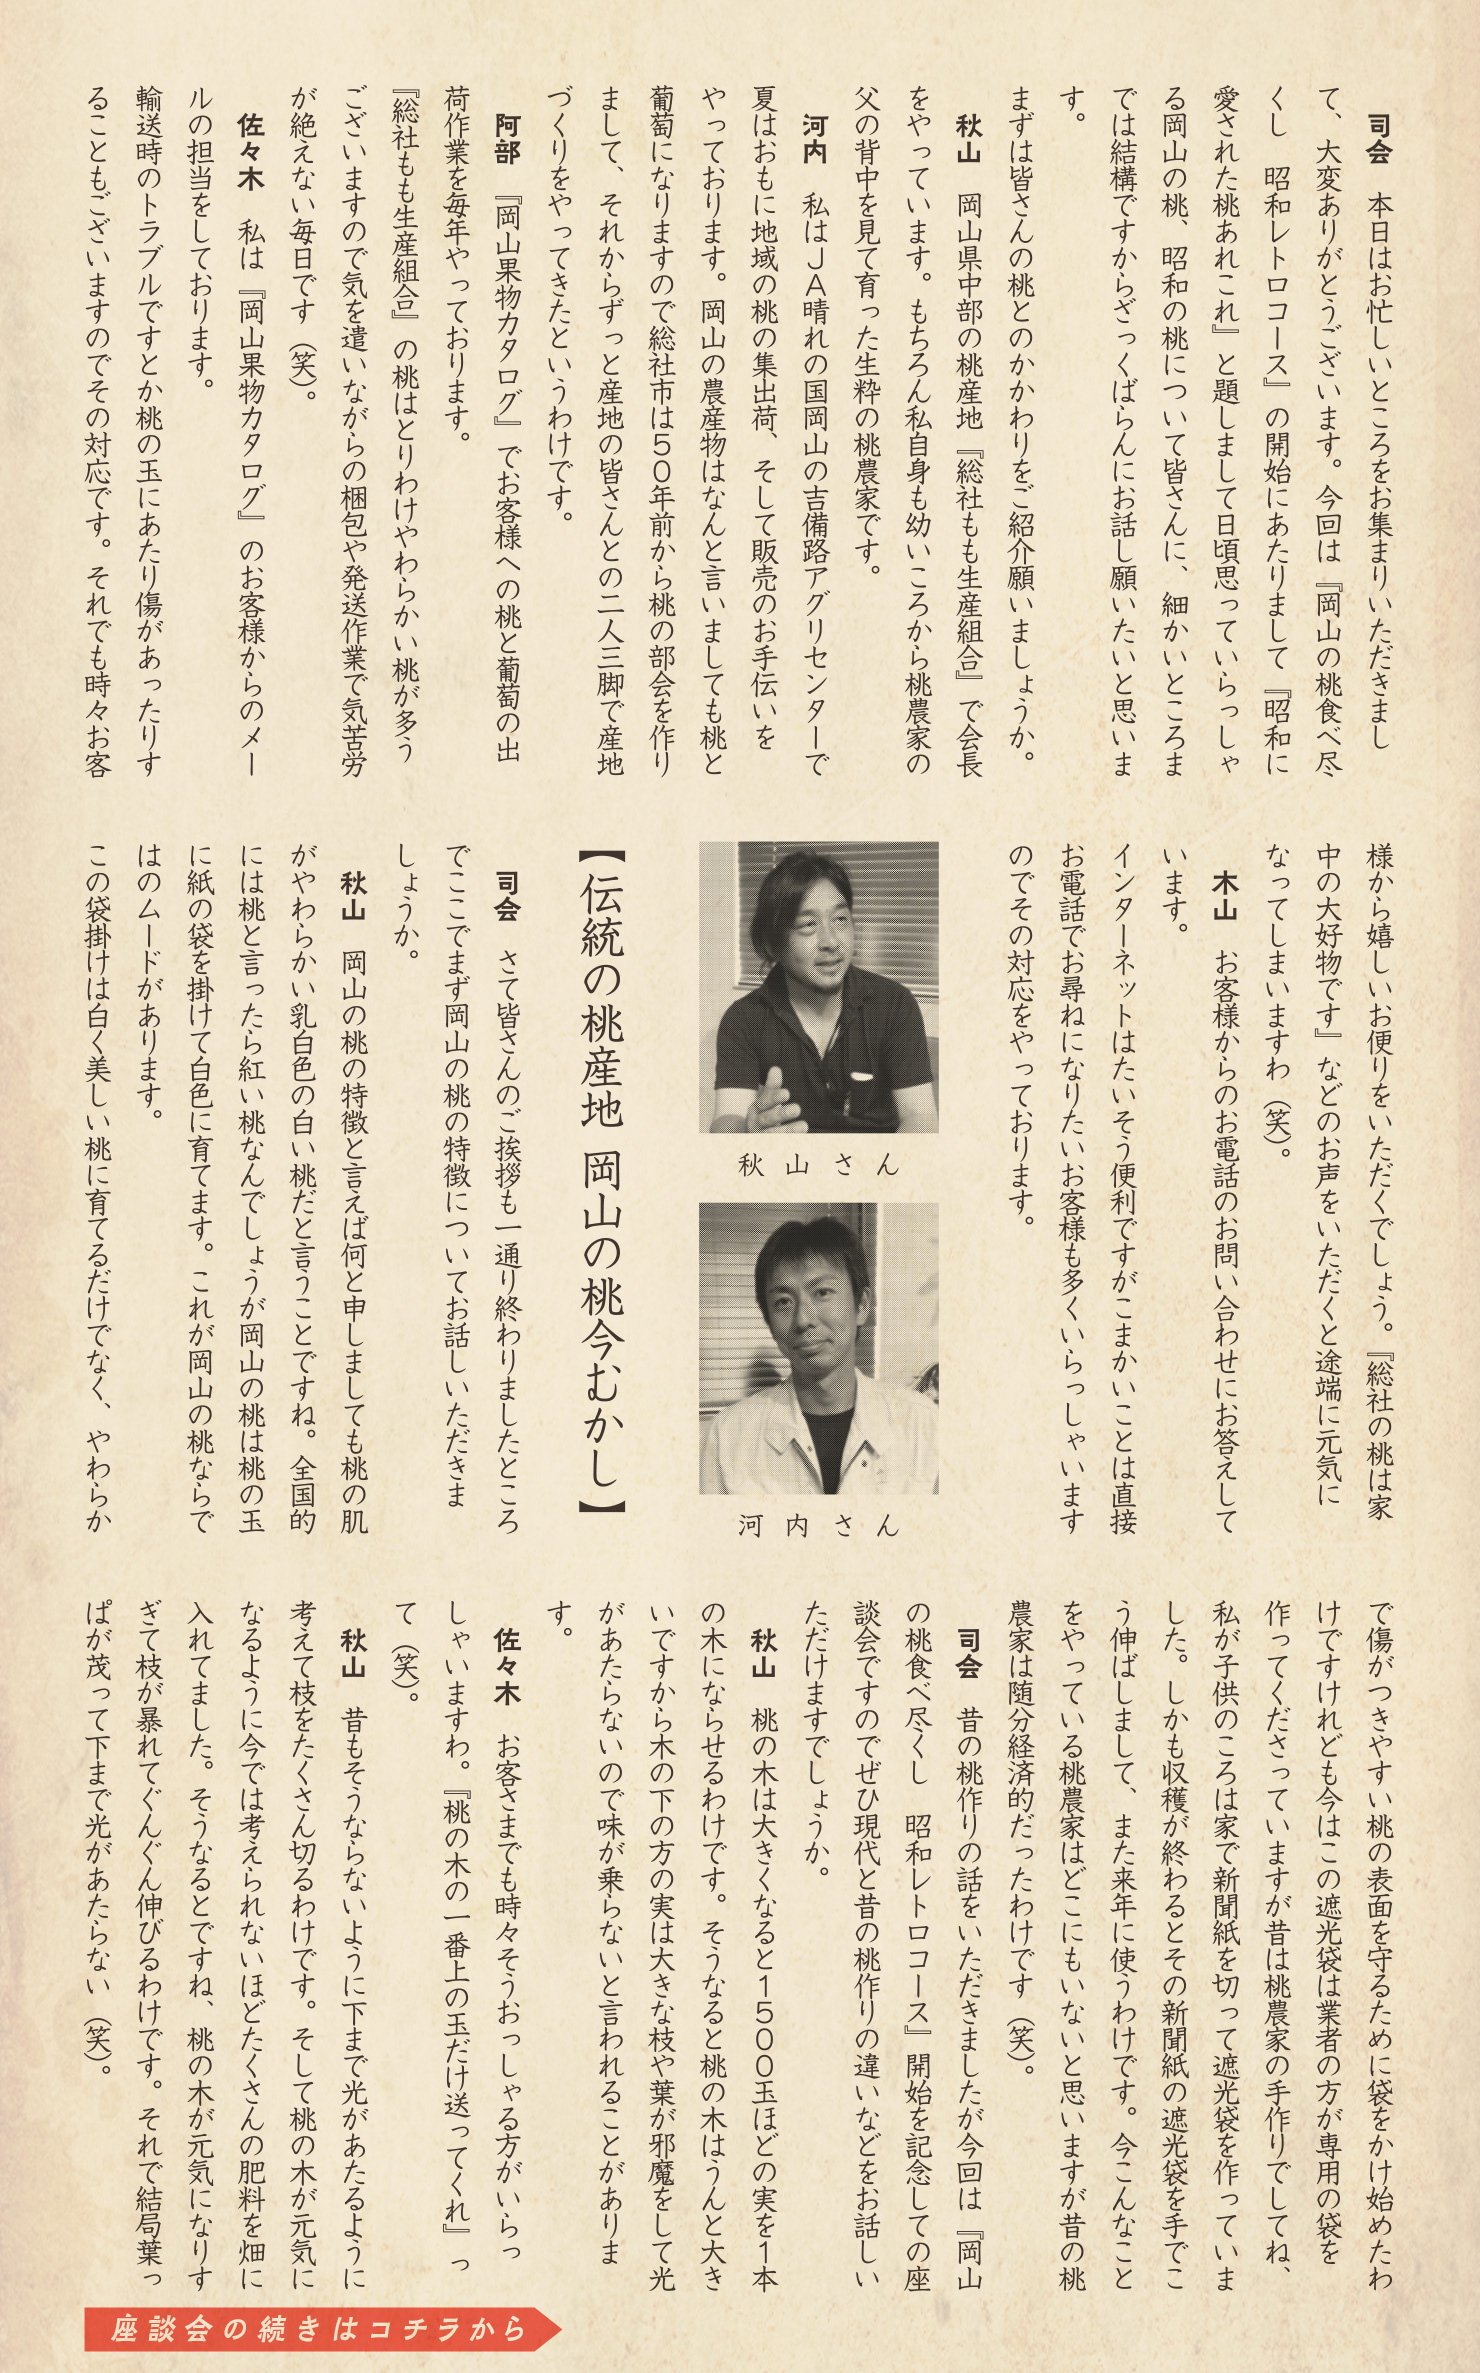 司会　本日はお忙しいところをお集まりいただきまし
て、大変ありがとうございます。今回は『岡山の桃食べ尽
くし　昭和レトロコース』の開始にあたりまして『昭和に
愛された桃あれこれ』と題しまして日頃思っていらっしゃ
る岡山の桃、昭和の桃について皆さんに、細かいところま
では結構ですからざっくばらんにお話し願いたいと思いま
す。
まずは皆さんの桃とのかかわりをご紹介願いましょうか。
　秋山　岡山県中部の桃産地『総社もも生産組合』で会長
をやっています。もちろん私自身も幼いころから桃農家の
父の背中を見て育った生粋の桃農家です。
　河内　私はＪＡ晴れの国岡山の吉備路アグリセンターで
夏はおもに地域の桃の集出荷、そして販売のお手伝いを
やっております。岡山の農産物はなんと言いましても桃と
葡萄になりますので総社市は５０年前から桃の部会を作り
まして、それからずっと産地の皆さんとの二人三脚で産地
づくりをやってきたというわけです。
　阿部　『岡山果物カタログ』でお客様への桃と葡萄の出
荷作業を毎年やっております。
『総社もも生産組合』の桃はとりわけやわらかい桃が多う
ございますので気を遣いながらの梱包や発送作業で気苦労
が絶えない毎日です（笑）。
　佐々木　私は『岡山果物カタログ』のお客様からのメー
ルの担当をしております。
輸送時のトラブルですとか桃の玉にあたり傷があったりす
ることもございますのでその対応です。それでも時々お客
様から嬉しいお便りをいただくでしょう。『総社の桃は家
中の大好物です』などのお声をいただくと途端に元気に
なってしまいますわ（笑）。
　木山　お客様からのお電話のお問い合わせにお答えして
います。
インターネットはたいそう便利ですがこまかいことは直接
お電話でお尋ねになりたいお客様も多くいらっしゃいます
のでその対応をやっております。
秋山さん
河内さん
【伝統の桃産地 岡山の桃今むかし】
　司会　さて皆さんのご挨拶も一通り終わりましたところ
でここでまず岡山の桃の特徴についてお話しいただきま
しょうか。
　秋山　岡山の桃の特徴と言えば何と申しましても桃の肌
がやわらかい乳白色の白い桃だと言うことですね。全国的
には桃と言ったら紅い桃なんでしょうが岡山の桃は桃の玉
に紙の袋を掛けて白色に育てます。これが岡山の桃ならで
はのムードがあります。
この袋掛けは白く美しい桃に育てるだけでなく、やわらか
で傷がつきやすい桃の表面を守るために袋をかけ始めたわ
けですけれども今はこの遮光袋は業者の方が専用の袋を
作ってくださっていますが昔は桃農家の手作りでしてね、
私が子供のころは家で新聞紙を切って遮光袋を作っていま
した。しかも収穫が終わるとその新聞紙の遮光袋を手でこ
う伸ばしまして、また来年に使うわけです。今こんなこと
をやっている桃農家はどこにもいないと思いますが昔の桃
農家は随分経済的だったわけです（笑）。
　司会　昔の桃作りの話をいただきましたが今回は『岡山
の桃食べ尽くし　昭和レトロコース』開始を記念しての座
談会ですのでぜひ現代と昔の桃作りの違いなどをお話しい
ただけますでしょうか。
　秋山　桃の木は大きくなると１５００玉ほどの実を１本
の木にならせるわけです。そうなると桃の木はうんと大き
いですから木の下の方の実は大きな枝や葉が邪魔をして光
があたらないので味が乗らないと言われることがありま
す。
　佐々木　お客さまでも時々そうおっしゃる方がいらっ
しゃいますわ。『桃の木の一番上の玉だけ送ってくれ』っ
て（笑）。
　秋山　昔もそうならないように下まで光があたるように
考えて枝をたくさん切るわけです。そして桃の木が元気に
なるように今では考えられないほどたくさんの肥料を畑に
入れてました。そうなるとですね、桃の木が元気になりす
ぎて枝が暴れてぐんぐん伸びるわけです。それで結局葉っ
ぱが茂って下まで光があたらない（笑）。
座談会の続きはコチラから